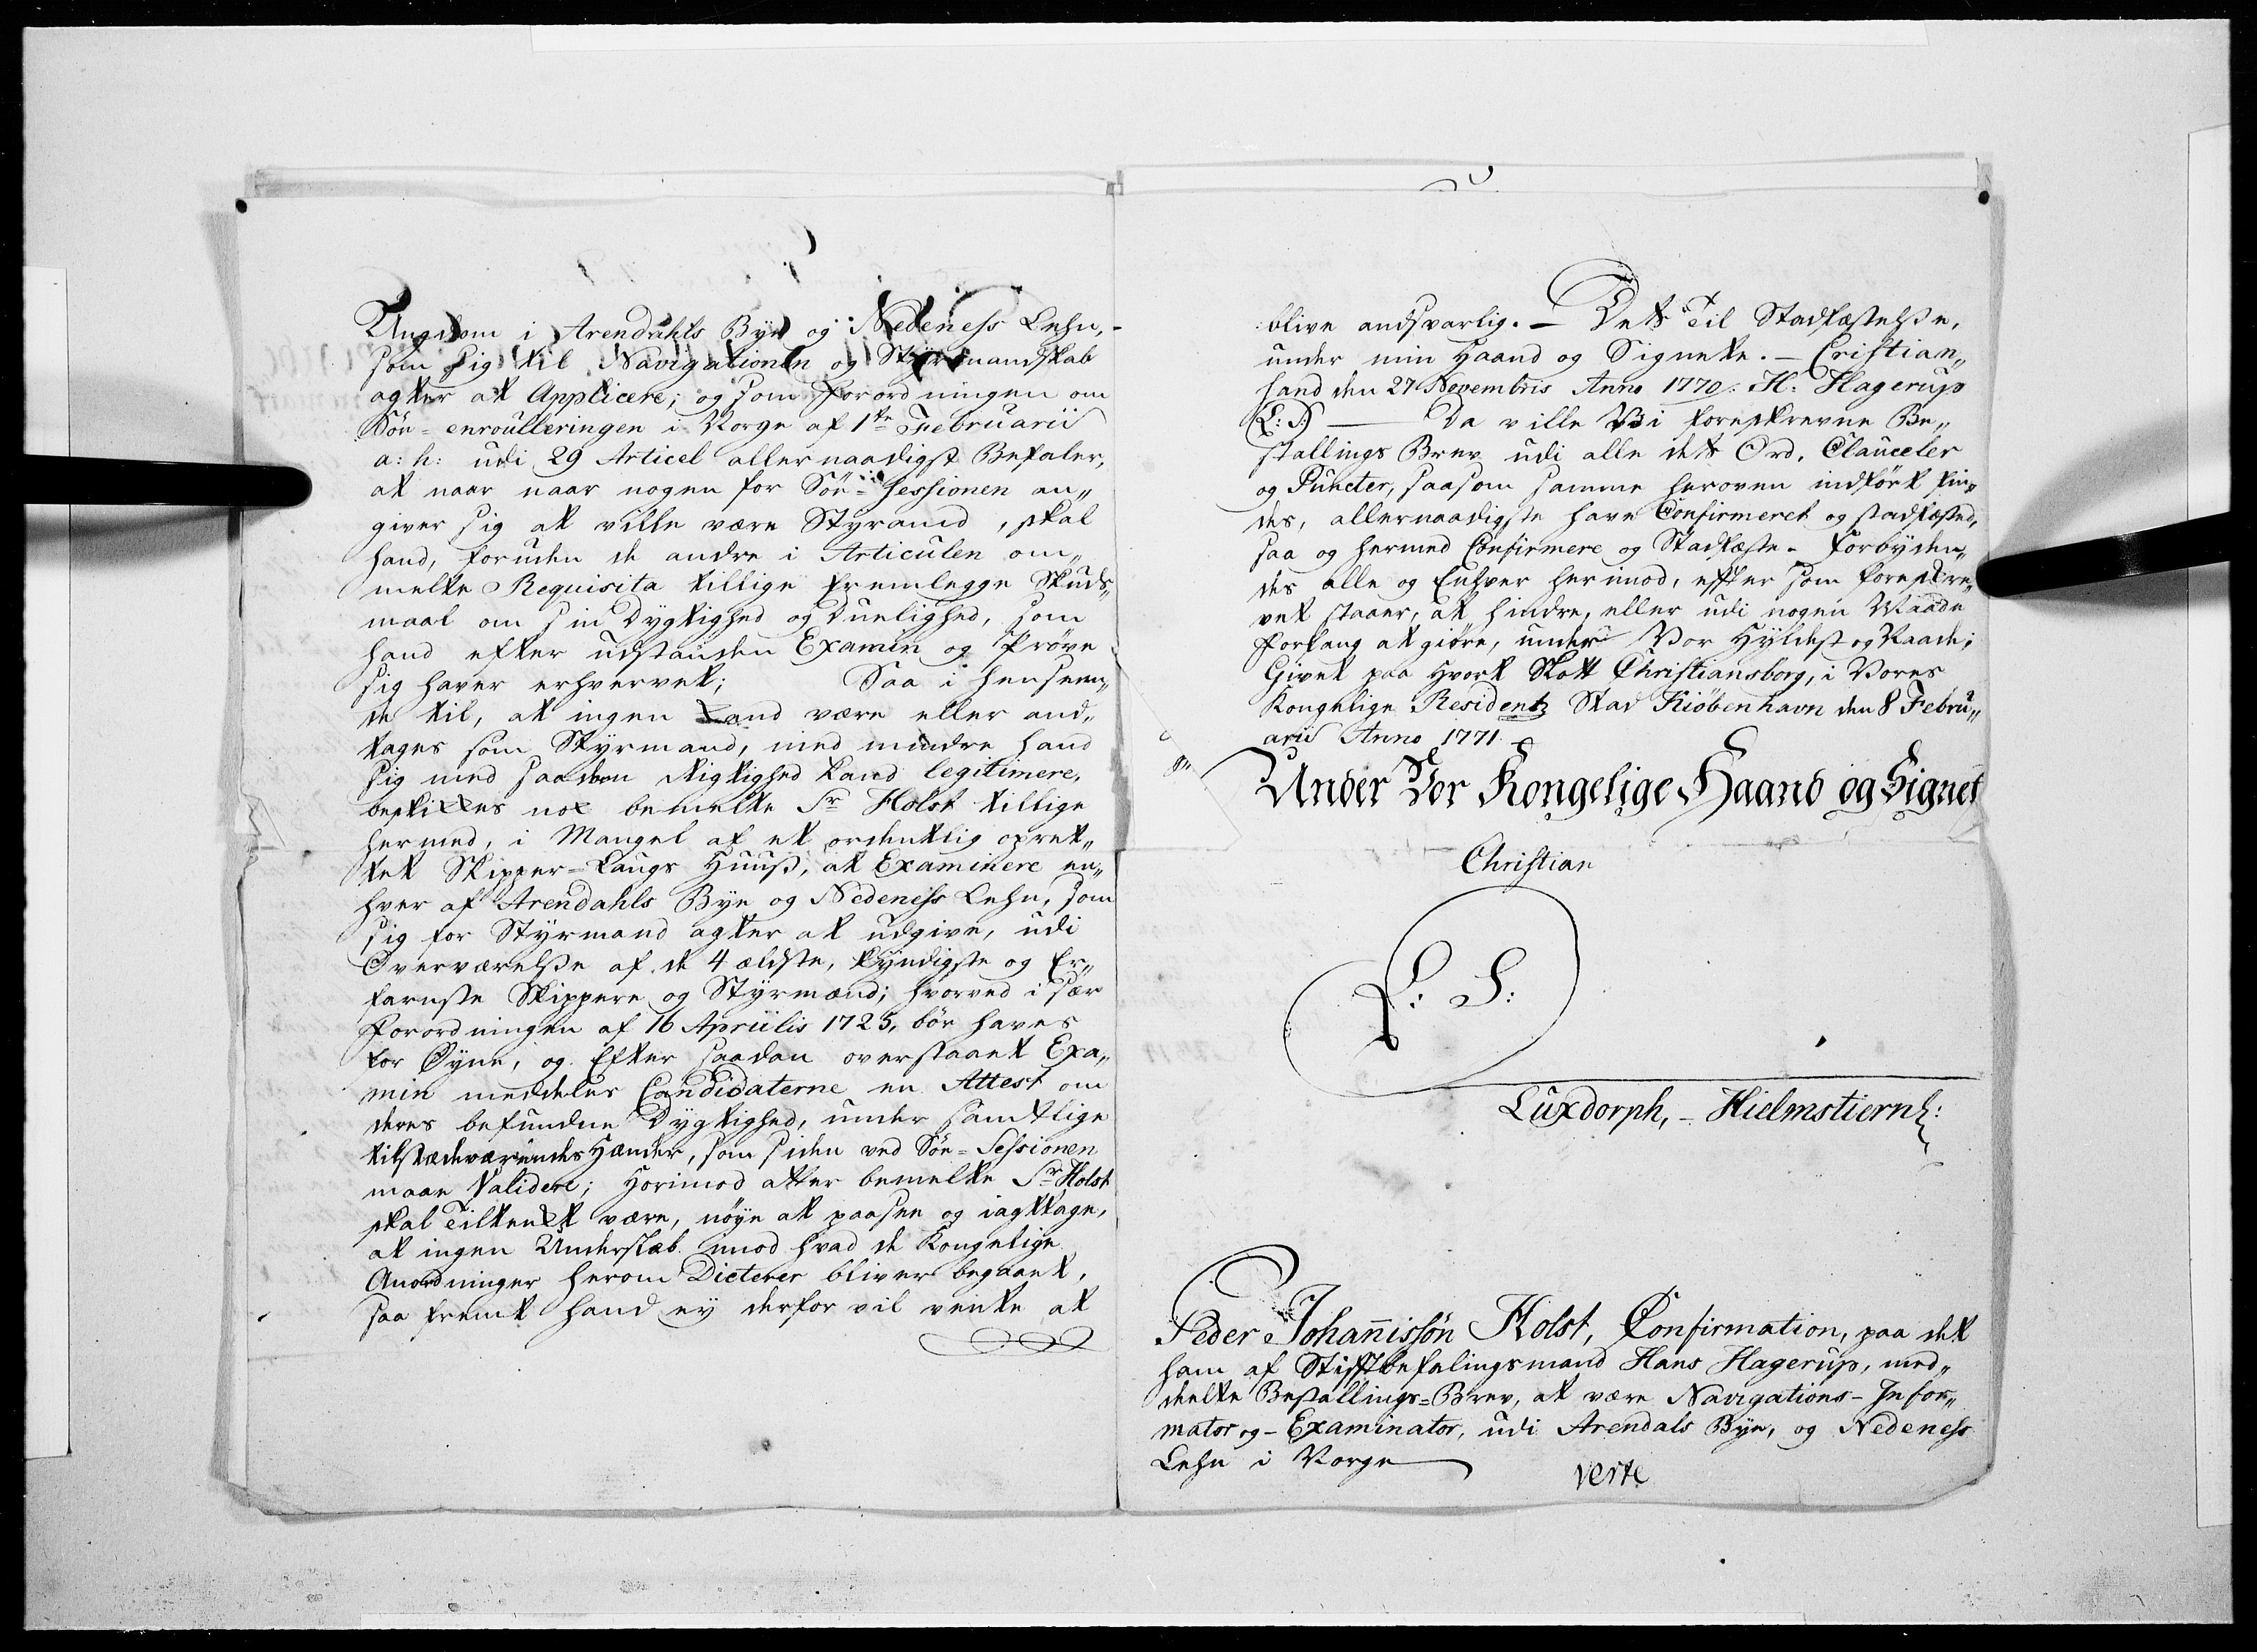 Ungdom i Arendahls Bye og Nedeness Lehn,-
som sig til Navigationen og Styrmandskab
agter at Applicere; og som Forordningen om
Söe-enroulleringen i Norge af 1te Februarii
a: h: udi 29 Articel allernaadigst Befaler,
at naar naar nogen for Söe-Sessionen an„
giver sig at ville være Styrmand, skal
hand, foruden de andre i Articulen om„
melte Requisita tillige fremlegge Skuds„
maal om sin Dygtighed og Duelighed, som
hand efter udstanden Examen og Pröve
sig haver erhvervet; Saa i henseen„
de til, at ingen kand være eller and„
tages som Styrmand, med mindre hand
sig med saadan Rigtighed kand legitimere,
beskikkes nok bemelte Sr Holst tillige
hermed, i Mangel af et ordentlig opret„
tet Skipper-Laugs Huus, at Examinere en„
hver af Arendahls Bye og Nedeness Lehn, som
sig for Styrmand agter at udgive, udi
Overværelse af de 4 ældste, kyndigste og Er„
farneste Skippere og Styrmænd; hvorved i sær
Forordningen af 16 Apriilis 1725, bör haves
for Øyne, og Efter saadan overstaaet Exa„
min meddeles Candidaterne en Attest om
deres befundne Dygtighed, under samtlige
tilstædeværendes Hænder, som siden ved Söe-Sessionen
maae Validere; Horimod atter bemelte Sr Holst
skal Tiltenkt være, nöye at paasee og iagttage,
at ingen Underslæb imod hvad de Kongelige
Anordninger herom Dicterer bliver begaaet,
saa fremt hand ey derfor vil vente at
blive andsvarlig. - Dets Til Stadfæstelse,
under min Haand og Signete. - Cristian„
sand den 27 Novembris Anno 1770. H: Hagerup
(L: S.) Da ville Vi forskrevne Be„
stallings Brev udi alle dets Ord, Clausuler
og Puncter, saasom samme heroven indfört fin„
des, allernaadigste have Confirmeret og stadfæsted,
saa og hermed Confirmere og Stadfæste. Forbyden„
des alle og Enhver herimod, efter som foreskre„
vet staaer, at hindre, eller udi nogen Maade
Forfang at giöre, under Vor Hyldest og Naade;
Givet paa Hvort Slott Christiansborg, i Vores
Kongelige Residentz Stad Kiöbenhavn den 8 Febru„
arii Anno 1771.
Under Vor Kongelige Haand og Signet
Christian
L: S:
Luxdorph, - Hielmstiern:
Peder Johanissön Holst, Confirmation, paa det
ham af Stiftbefalingsmand Hans Hagerup, med„
deelte Bestallings-Brev, at være Navigations-Infor„
mator og-Examinator, udi Arendals Bye, og Nedeness
Lehn i Norge
verte